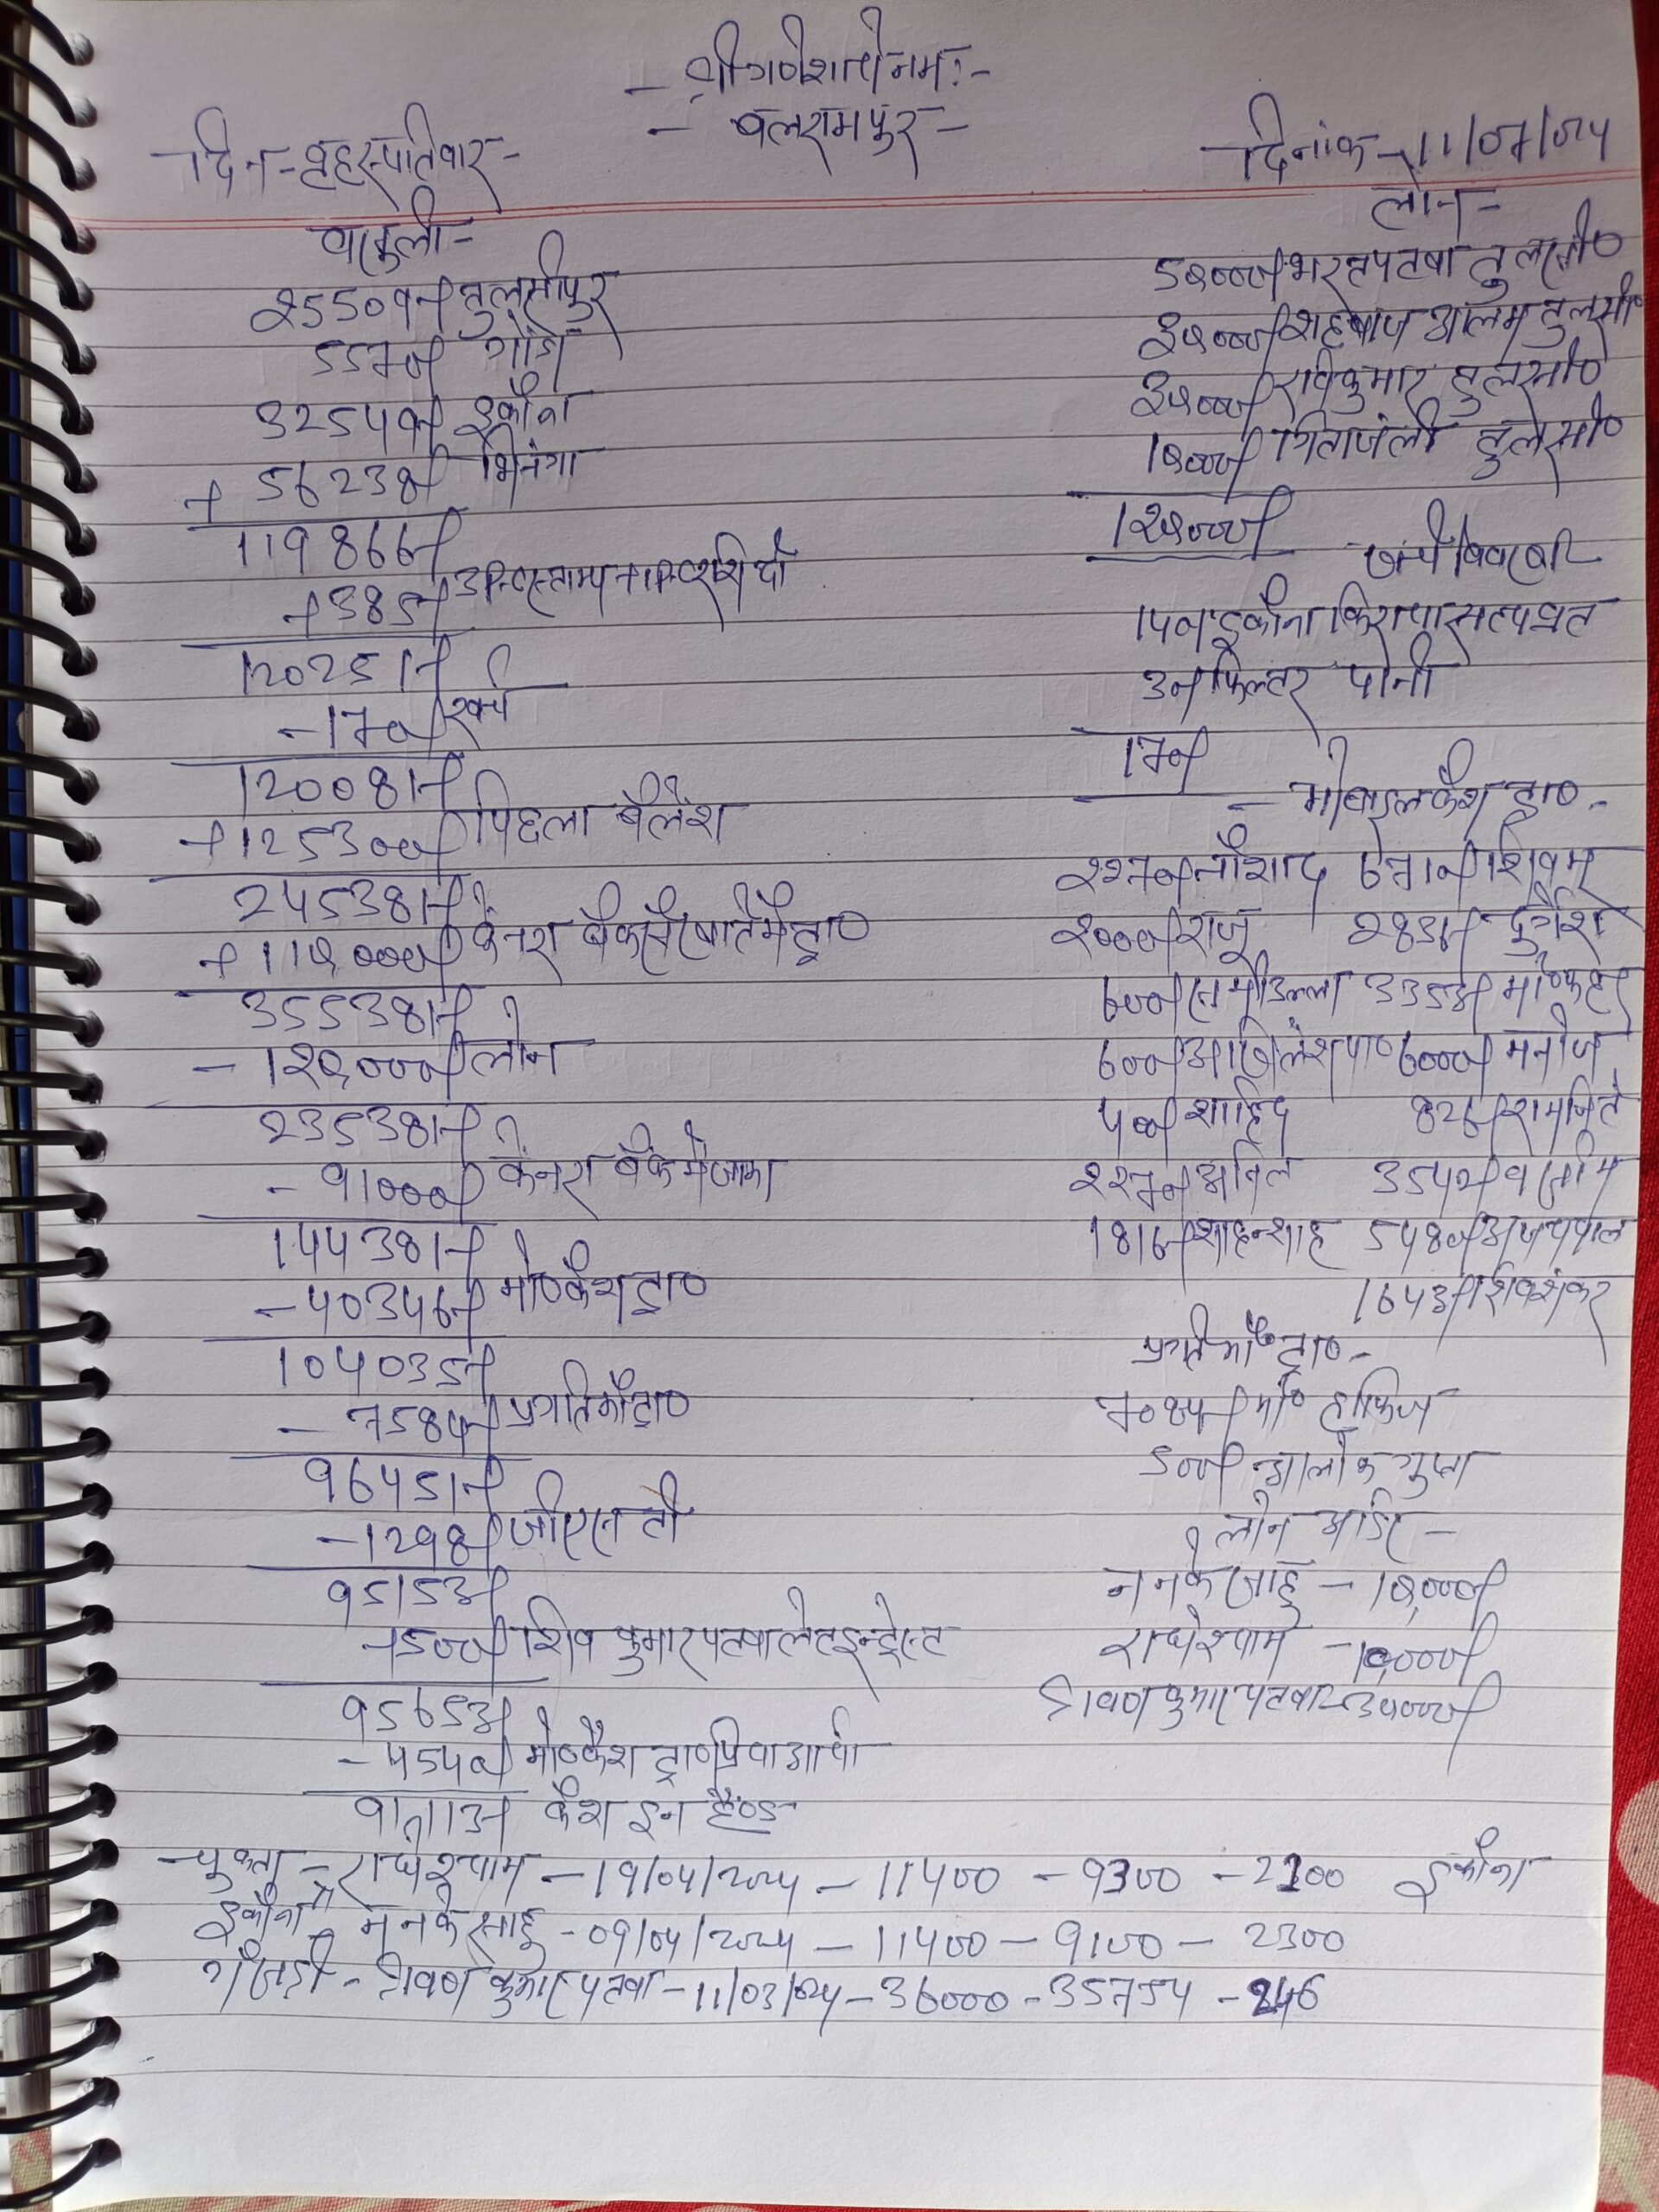 - श्री गणेशाये नमः -
- बलरामपुर -
दिन - बृहस्पतिवार -
दिनांक - 11/07/024
वासुली -
25509/- तुलसीपुर
5570/- गोंडा
32549/- इकौना
+ 56238/- भिनगा
119866/-
+385/-
120251/-
- 170/- खर्च
120081/-
+125300/- पिछला बैलेंश
245381/-
+110,000/- केनरा बैंक से खाते में ट्रा०
355381/-
- 120,000/- लोन
235381/-
- 91000/- केनरा बैंक में जामा
144381/-
- 40346/- मो० कैश ट्रा०
104035/-
- 7584/- प्रगति मो० ट्रा०
96451/-
- 1298/- जीएस टी
95153/-
+500/- शिव कुमार पटवा लेट इन्ट्रेस्ट
95653/-
- 4540/- मो० कैश ट्रा० प्रिया आर्या
91113/- कैश इन हैण्ड
लोन -
50000/- भरत पटवा तुलसी०
30000/- शहबाज आलम तुलसी०
30000/- रविकुमार तुलसी०
10000/- गितांजली तुलसी०
120000/-
140/- इकौना किराया सत्यव्रत
30/- फिल्टर पानी
170/-
- मोबाइल कैश ट्रा० -
2270/- नौशाद 6710/- शिवम्
2000/- राजु 2836/- दुर्गेश
600/- समीउल्ला 3353/- मो० कहर
600/- अखिलेश पा० 6000/- मनोज
400/- शाहिद 826/- रामजिते
2270/- अनिल 3542/- वसीम
1816/- शाहन्शाह 5480/- अजयपाल
1643/- शिवशंकर
प्रगति मो० ट्रा० -
7084/- मो० हाफिज
500/- आलोक गुप्ता
लोन आर्डर -
ननके साहु - 10,000/-
राधेश्याम - 10,000/-
श्रावण कुमार पटवा - 30000/-
- चुकता - राधेश्याम - 19/04/2024 - 11400 - 9300 - 2100 इकौना
इकौना - ननके साहु - 09/04/2024 - 11400 - 9100 - 2300
- श्रावण कुमार पटवा - 11/03/024 - 36000 - 35754 - 246